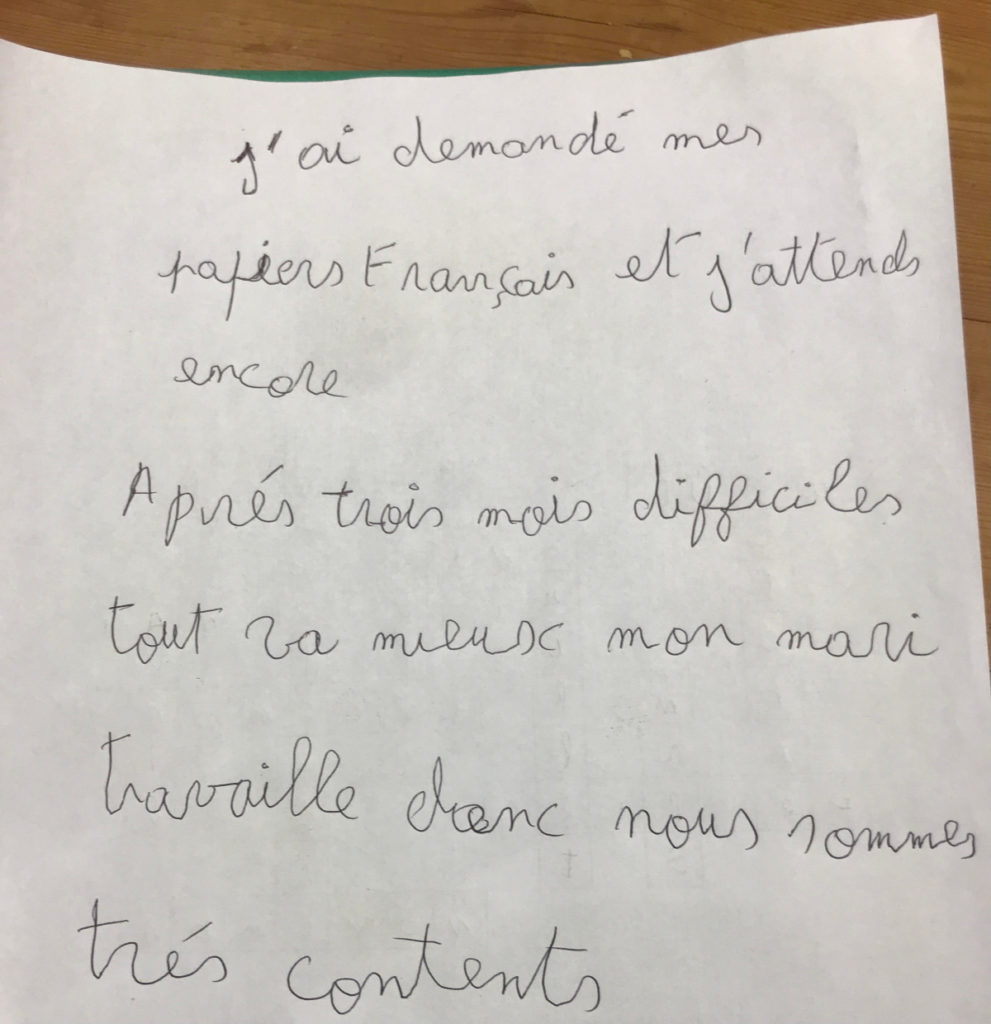 j'ai demandé mes
papiers Français et j'attends
encore
Aprés trois mois difficiles
tout va mieux mon mari
travaille donc nous sommes
trés contents